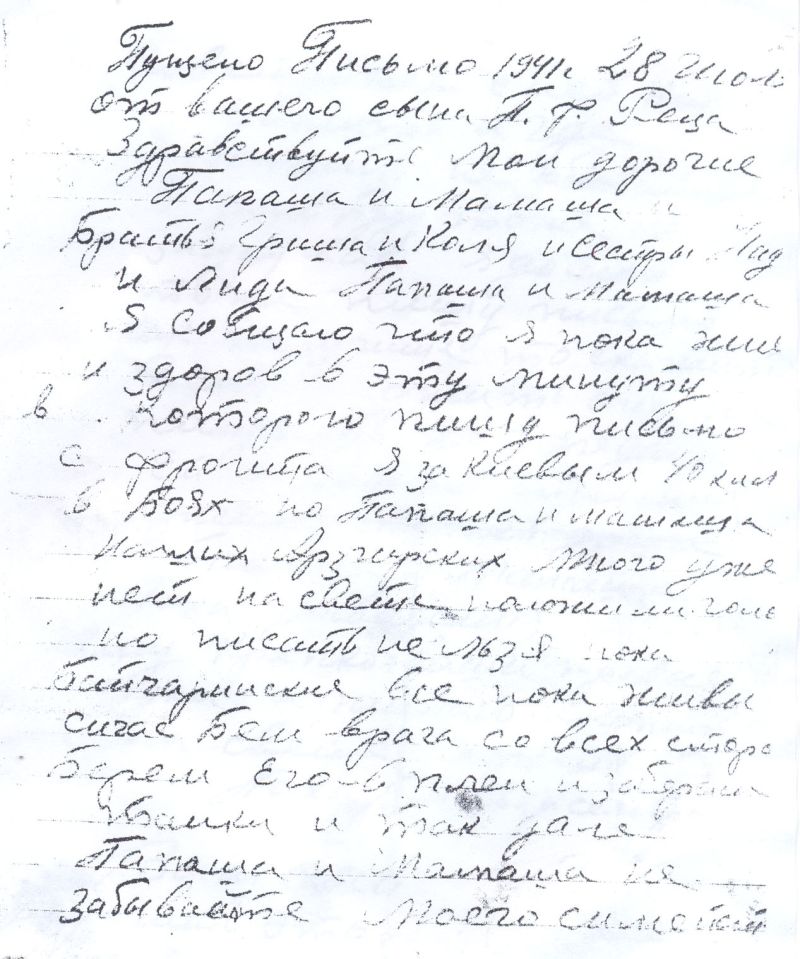 Пущено Письмо 1941г 28 Июл
от вашего сына П. Ф. Реца
Здравствуйте мои дорогие
Папаша и Мамаша и
Братья Гриша и Коля и Сестры Над
и Лида Папаша и Мамаша
Я Собщаю что я пока жив
и здоров в эту минуту
в которого пишу письмо
с фронта Я за Киевым 40 клм
в Боях но Папаша и мамаша
наших Арзгирских много уже
нест на свети положили голо
но писать не льзя пока
все пока живы
сичас Бем врага со всех сторо
Берем Его в плен и забераем
танки и так дале
Папаша и Мамаша не
забывайте Моего